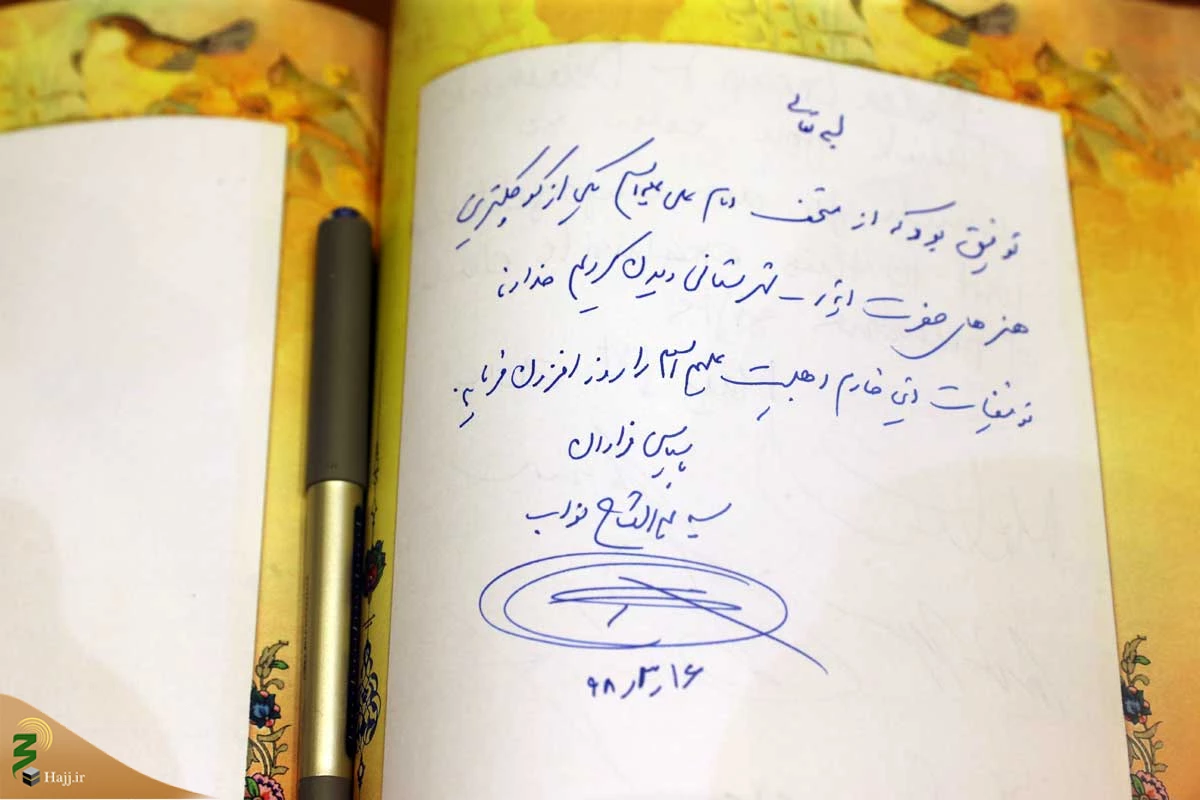 بسمه تعالی
توفیق بود که از متحف امام علی علیه السلام یکی از کوچکترین
هنرهای حضرت شهرستانی دیدن کردیم خداوند
توفیقات این خادم اهلبیت علیهم السلام را روز افزون فرماید.
با سپاس فراوان
سید عبدالفتاح نواب
۹۸ر۳ر۱۶
Hajj.ir